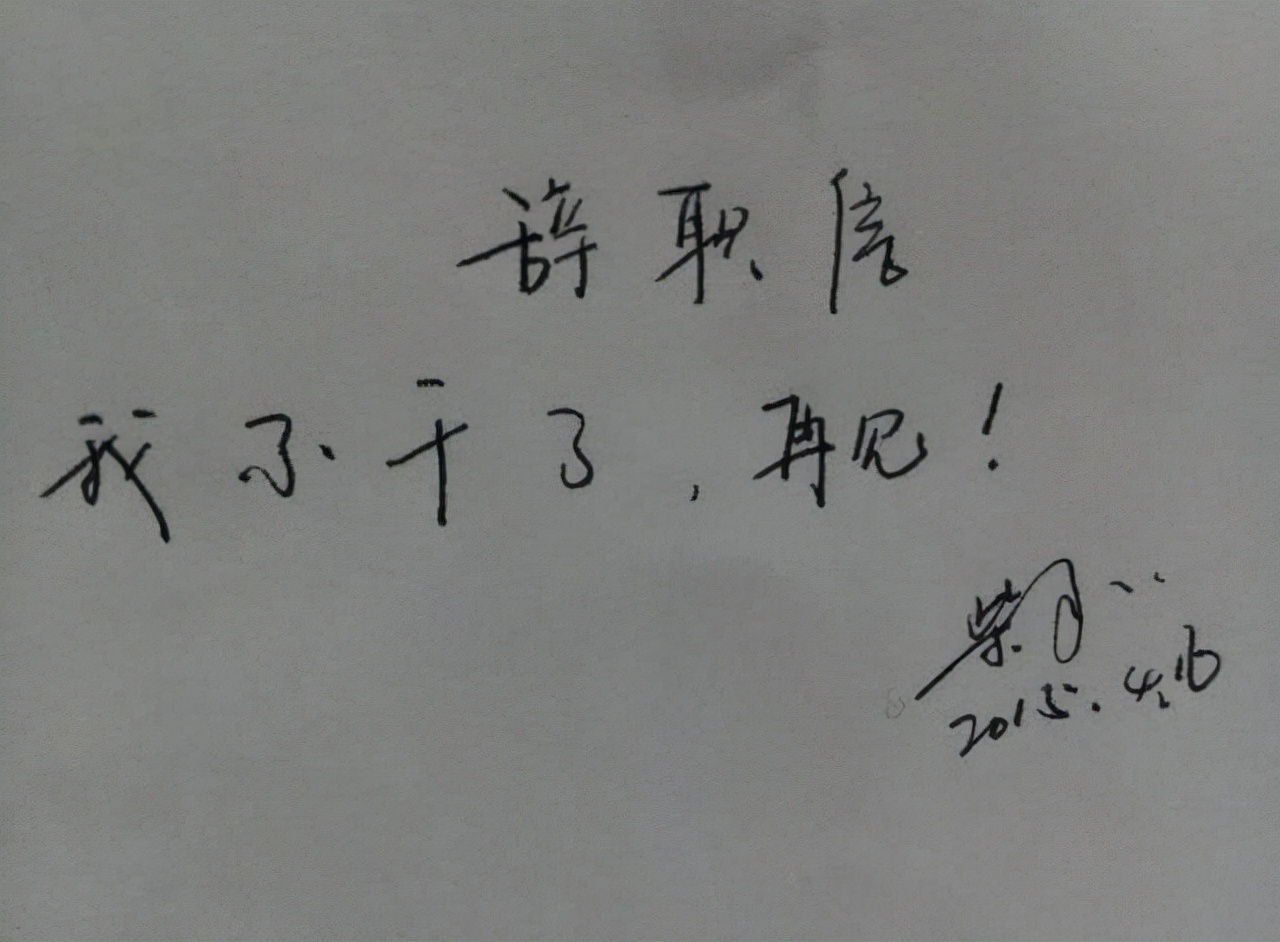 辞职信
我不干了,再见!
2015.4.16